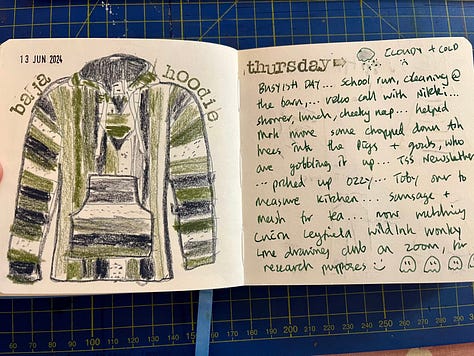 13 JUN 2024
baja hoodie
thursday → CLOUDY + COLD
BUSYISH DAY... school run, cleaning @
the barn... video call with Nikki...
shower, lunch, cheeky nap... helped
move some chopped down
trees into the pigs + goats, who
are gobbling it up... TSS Newsletter
... picked up Ozzy... Toby over to
measure kitchen... sausage +
mash for tea... now watching
Leyfield wildink wonky
line drawing club on zoom, for
research purposes